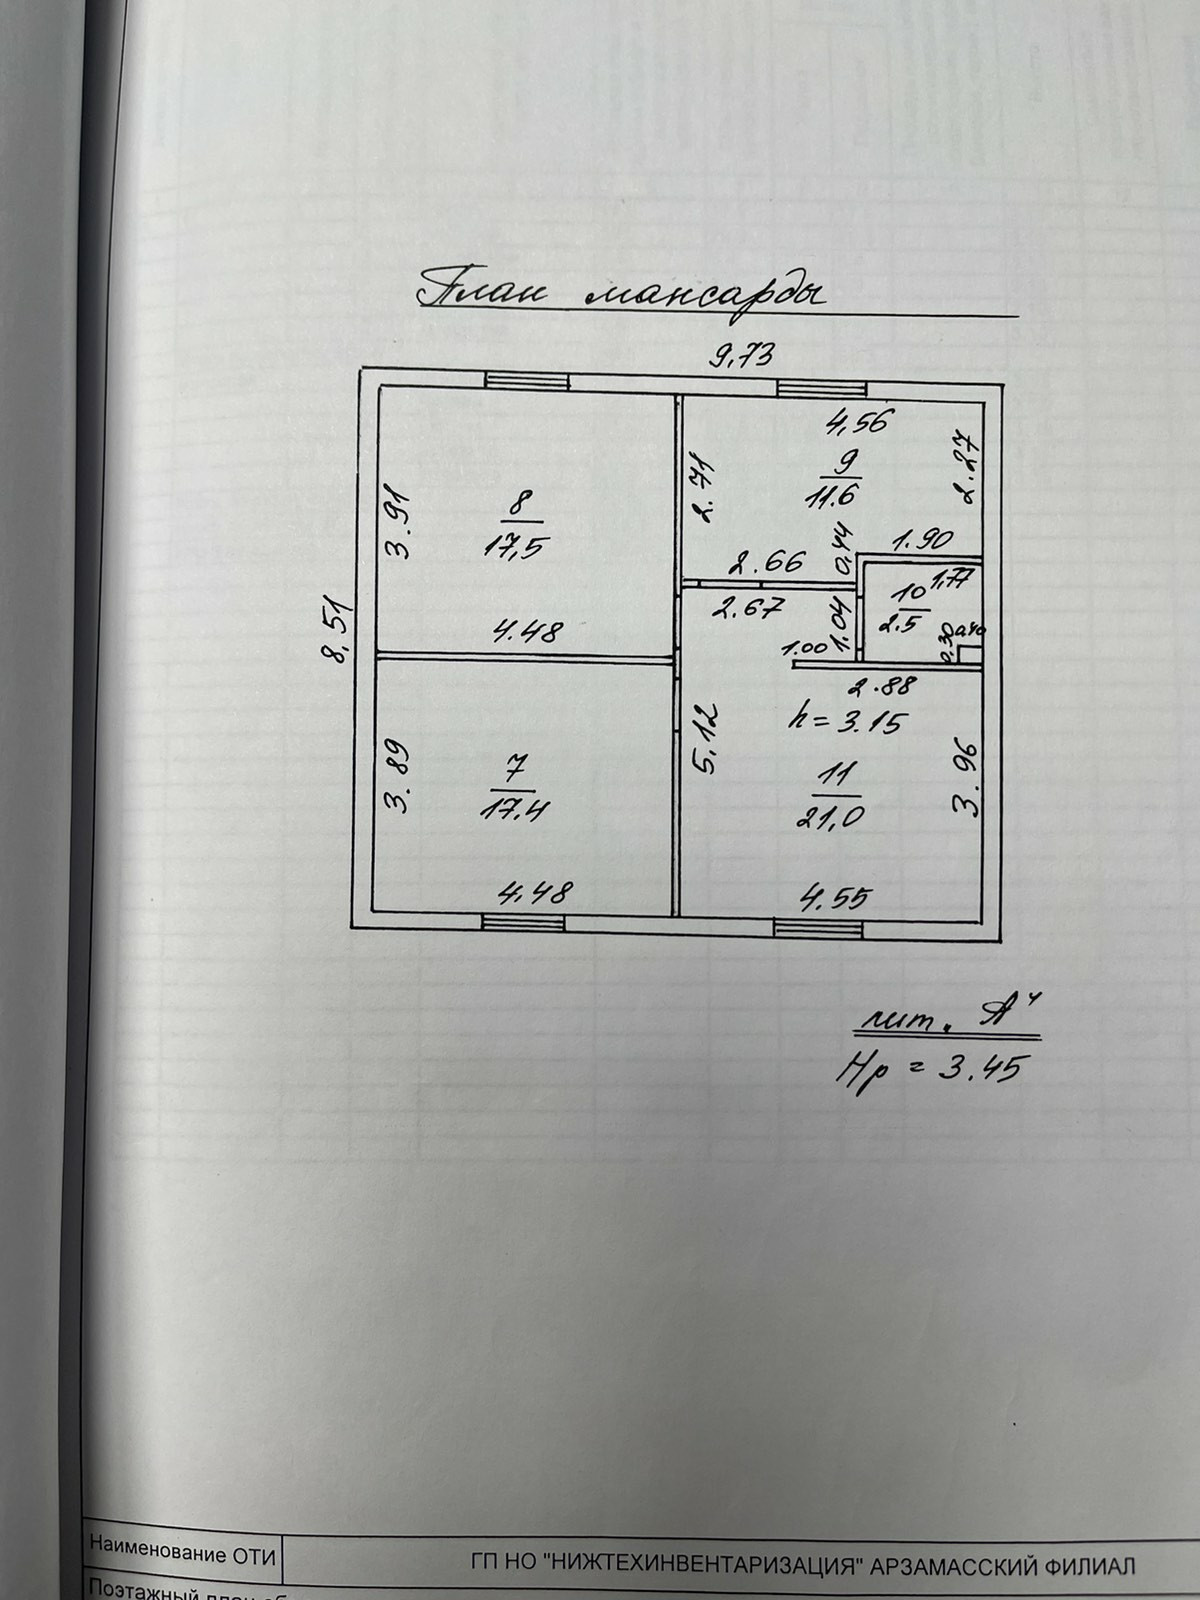 План мансарды
9,73
4,56
9
11.6
2.71
2.27
3.91
8
17,5
0,44
1.90
2.66
2.67
1.04
10
1,77
2.5
0.30
0.40
1.00
8,51
4.48
2.88
h = 3.15
5,12
3.89
7
17.4
11
21,0
3.96
4,48
4.55
лит. А⁴
Нр = 3.45
Наименование ОТИ
ГП НО "НИЖТЕХИНВЕНТАРИЗАЦИЯ" АРЗАМАССКИЙ ФИЛИАЛ
Поэтажный план